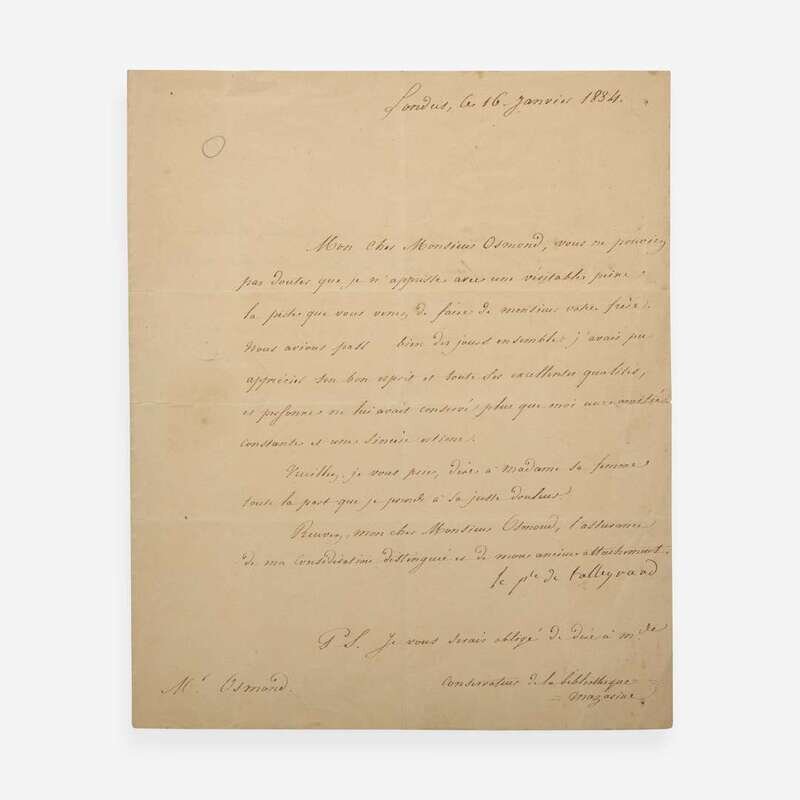 Londres, le 16. Janvier 1834.
Mon cher Monsieur Osmond, vous ne pouviez
pas douter que je n'apprisse avec une véritable peine
la perte que vous venez de faire de monsieur votre frère.
Nous avions passé bien des jours ensemble: j'avais pu
apprécier son bon esprit et toutes ses excellentes qualités,
et personne ne lui avait conservé plus que moi une amitié
constante et une sincère estime.
Veuillez, je vous prie, dire à madame sa femme
toute la part que je prends à sa juste douleur.
Recevez, mon cher Monsieur Osmond, l'assurance
de ma considération distinguée et de mon ancien attachement.
le p^ce de talleyrand
P.S. Je vous serais obligé de dire à m.
Mr Osmond.
Conservateur de la bibliothèque
mazarine